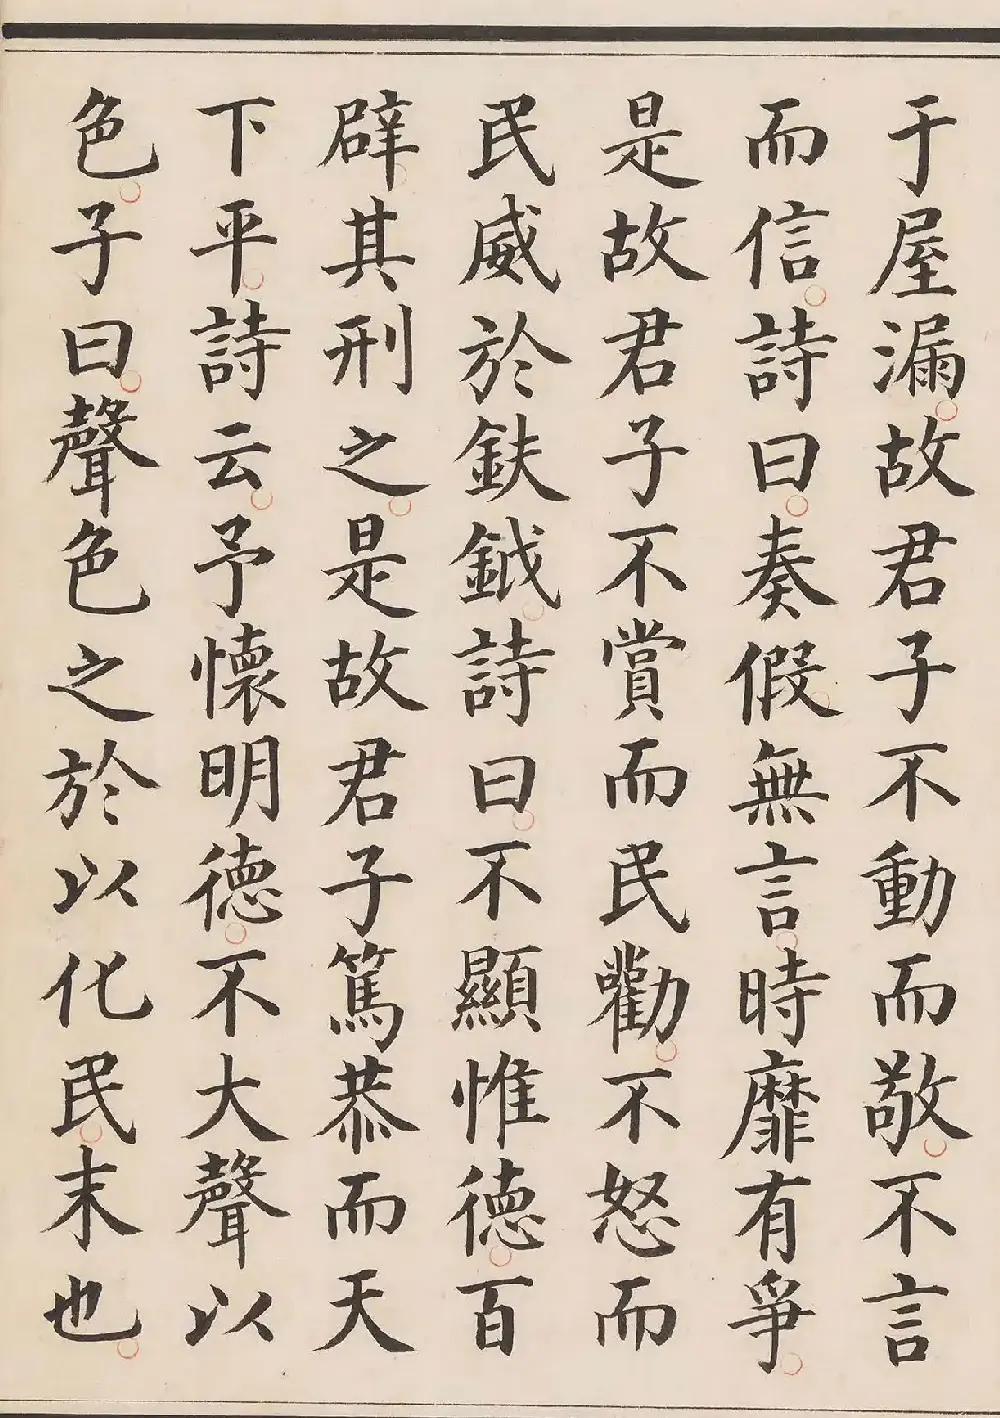 于屋漏故君子不動而敬不言
而信詩曰奏假無言時靡有爭
是故君子不賞而民勸不怒而
民威於鈇鉞詩曰不顯惟德百
辟其刑之是故君子篤恭而天
下平詩云予懷明德不大聲以
色子曰聲色之於以化民末也